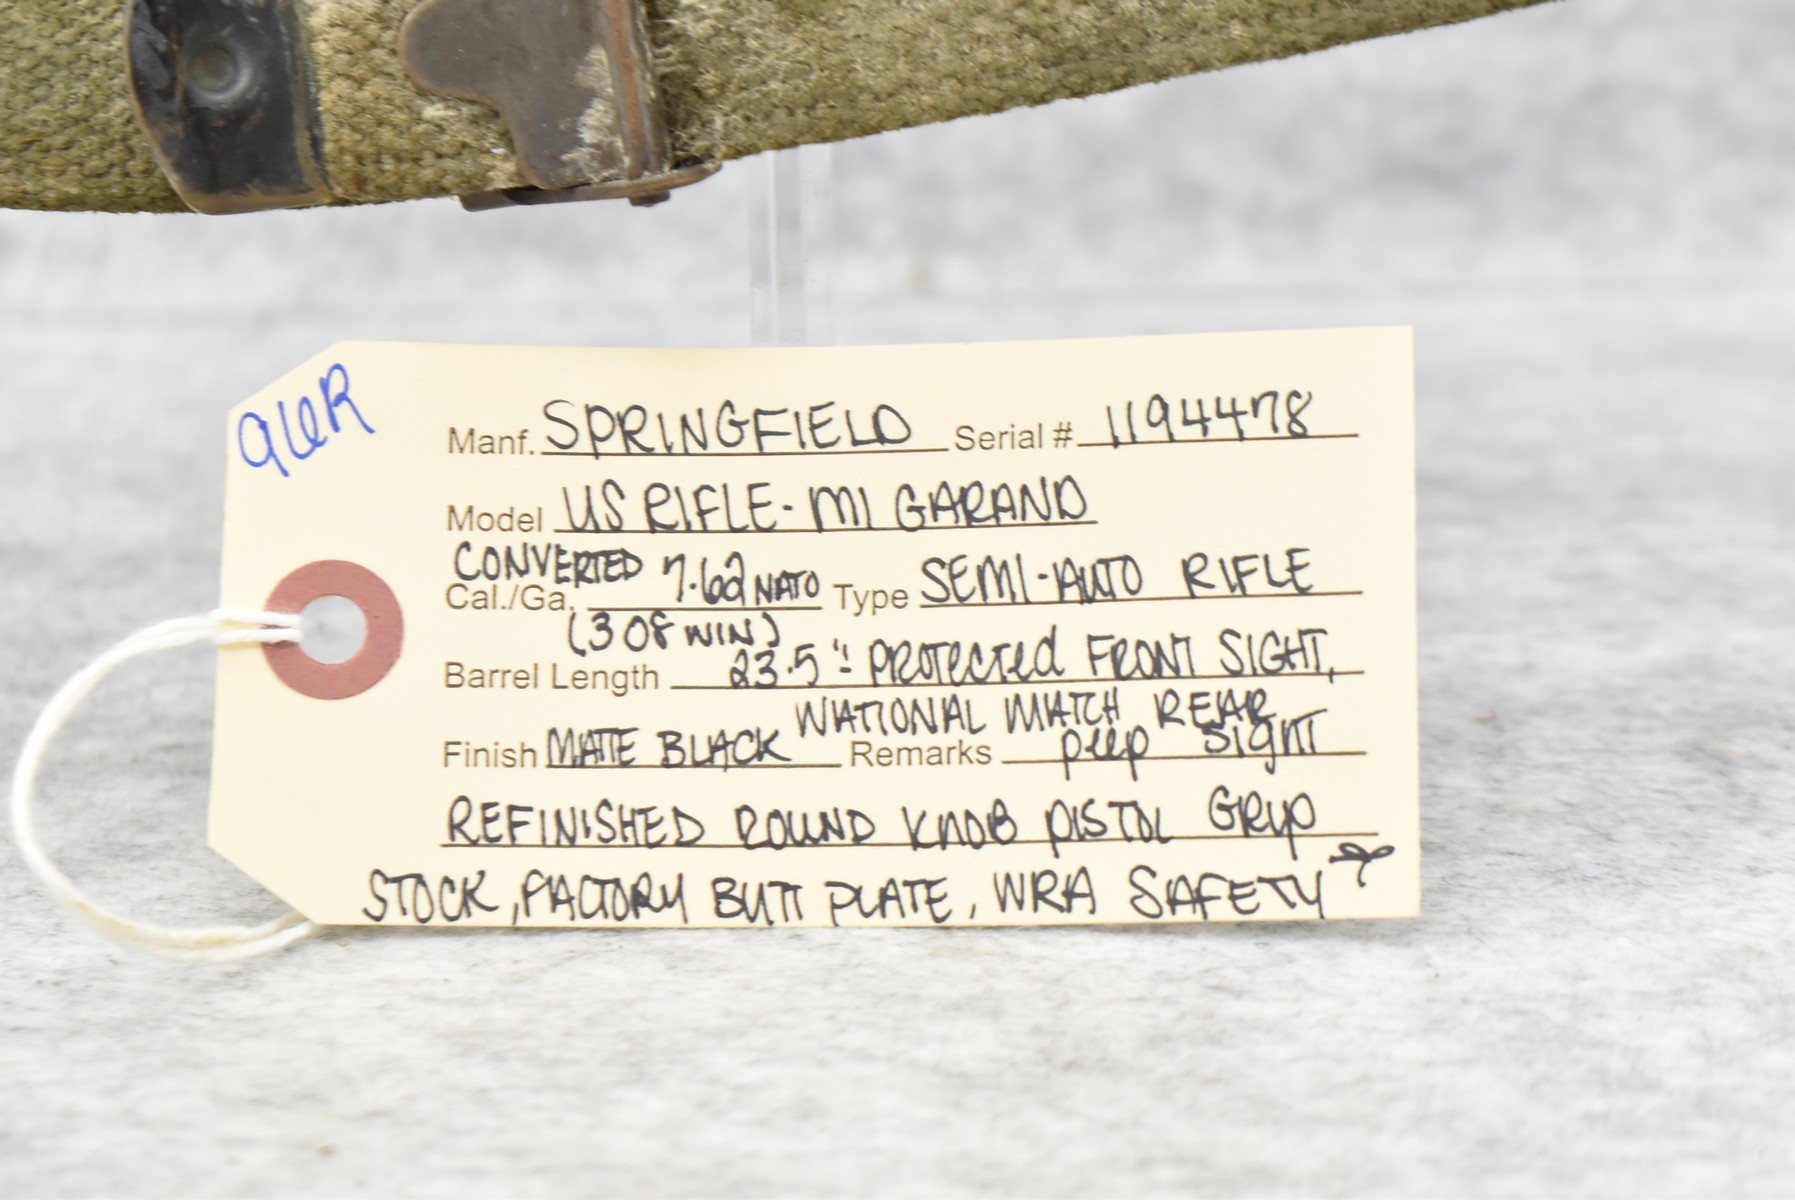 916R
Manf. SPRINGFIELD Serial # 1194478
Model US RIFLE - M1 GARAND
CONVERTED
Cal./Ga. 7.62 NATO Type SEMI-AUTO RIFLE
(308 WIN)
Barrel Length 23.5" : PROTECTED FRONT SIGHT,
NATIONAL MATCH REAR
Finish MATTE BLACK Remarks peep SIGHT
REFINISHED ROUND KNOB PISTOL GRIP
STOCK, FACTORY BUTT PLATE, WRA SAFETY *